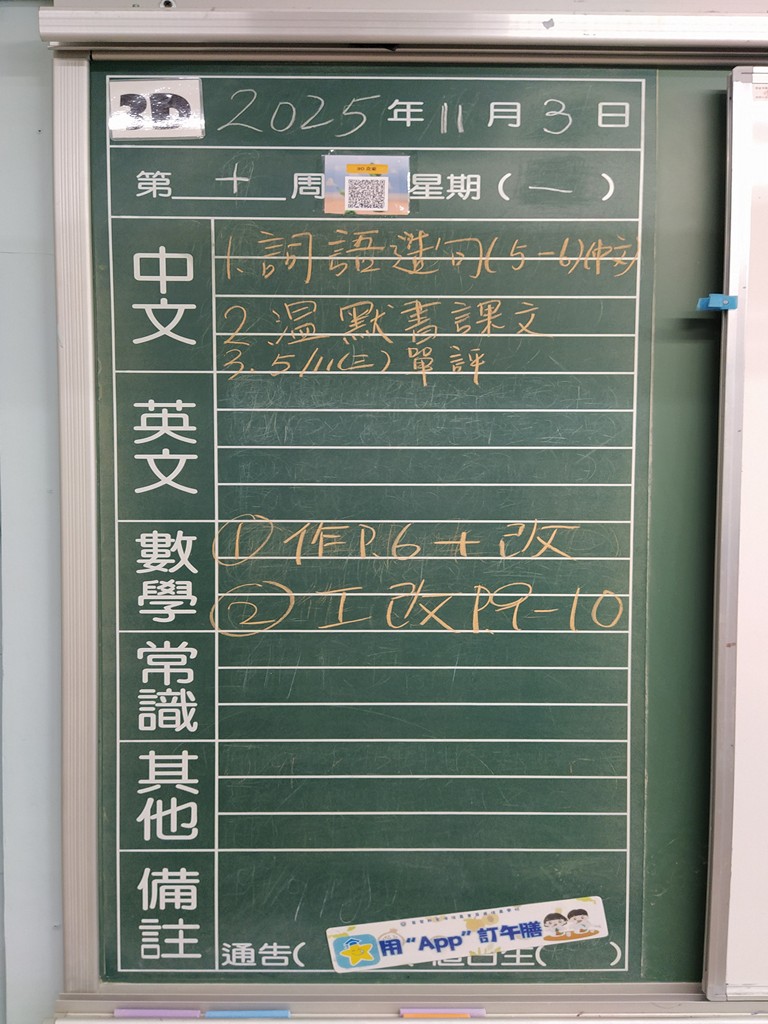 3D 2025年11月3日
第十周 星期(一)
中文
1.詞語造句(5-6)(中文)
2.温默書課文
3.5/11(三)單評
英文
數學
①作P.6+改
②工改P.9-10
常識
其他
備註
通告(
用“App”訂午膳
生( )